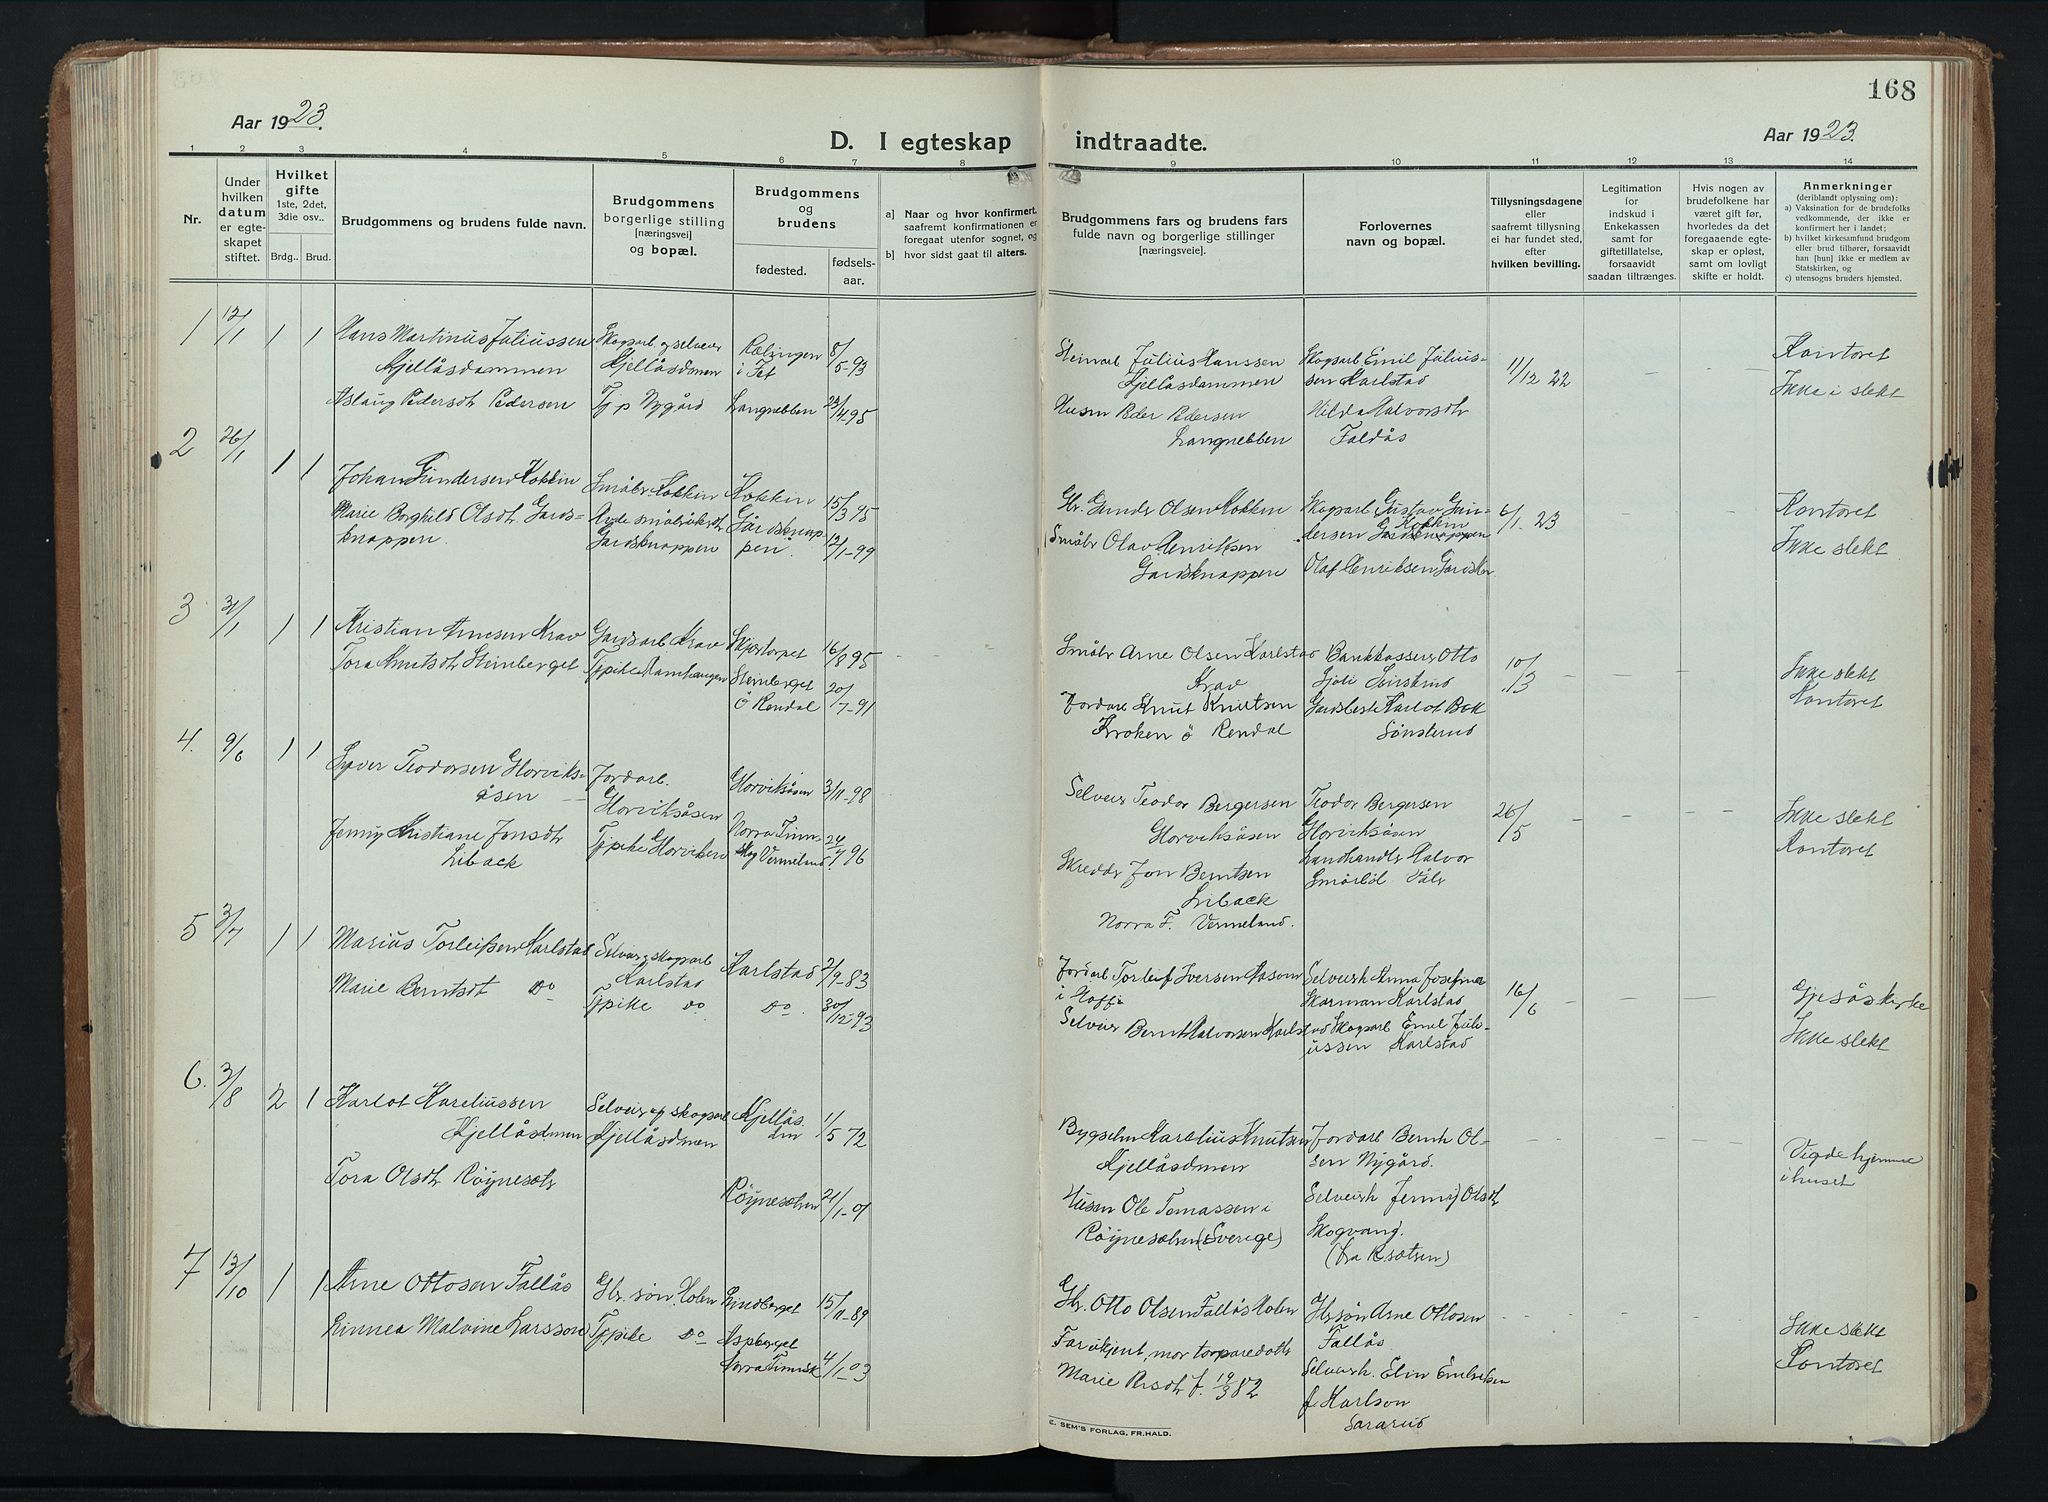 168
Aar 1923.
D. I egteskap indtraadte.
Aar 1923.
1 2 3 4 5 6 7 8 9 10 11 12 13 14
Nr.
Under hvilken datum er egteskapet stiftet.
Hvilket gifte
1ste, 2det, 3die osv..
Brdg..
Brud.
Brudgommens og brudens fulde navn.
Brudgommens
borgerlige stilling
[næringsvei]
og bopæl.
Brudgommens
og
brudens
fødested.
fødsels-
aar.
a] Naar og hvor konfirmert,
saafremt konfirmationen er
foregaat utenfor sognet, og
b] hvor sidst gaat til alters.
Brudgommens fars og brudens fars
fulde navn og borgerlige stillinger
[næringsveie].
Forlovernes
navn og bopæl.
Tillysningsdagene
eller
saafremt tillysning
ei har fundet sted,
efter
hvilken bevilling.
Legitimation
for
indskud i
Enkekassen
samt for
giftetillatelse,
forsaavidt
saadan tiltrænges.
Hvis nogen av
brudefolkene har
været gift før,
hvorledes da det
foregaaende egte-
skap er opløst,
samt om lovligt
skifte er holdt.
Anmerkninger
(deriblandt oplysning om):
a) Vaksination for de brudefolks
vedkommende, der ikke er
konfirmert her i landet;
b) hvilket kirkesamfund brudgom
eller brud tilhører, forsaavidt
han [hun] ikke er medlem av
Statskirken, og
c) utensogns bruders hjemsted.
1 12/1 1 1 Hans Martinus Juliussen
Kjellåsdammen
Skogsarb og selveier
Kjellåsdmen
i Fet
8/5-93
Aslaug Pedersdtr Pedersen
Tj p Nygård
Langnebben
23/4-95
Julius Hanssen
Kjellåsdammen
Husm Peder Pedersen
Langnebben
Skogsarb Emil Julius-
sen Karlstad
Hilda Halvorsdtr
Faldås
11/12 22
Kontoret
Ikke i slekt
2 26/1 1 1 Johan Gundersen Kokkin
Småbr. Kokkin
Kokkin
15/3 95
Marie Borghild Olsdtr Gards-
knappen.
Gardsknappen
Gårdsknap-
pen.
12/1-99
Gbr. Gunder Olsen Kokken
Småbr Olav Henriksen
Gardsknappen
Skogsarb Gustav Gun-
dersen Kokkin
Olaf Henriksen Gardskn
6/1-23
Kontoret
Ikke slekt
3 31/1 1 1 Kristian Arnesen Krav
Gardsarb Krav
16/8 95
Tora Knutsdtr Steinberget
Tjpike
Steinberget
ö Rendal
20/7-91
Småbr Arne Olsen Karlstad
Krav
Jordarb Knut Knutsen
Kroken ö Rendal
Bankkasserer Otto
Gardbest Karlot Bek
Sönsterud
10/13
Ikke slekt
Kontoret
4. 9/6 1 1 Syver Teodorsen Horviks-
åsen
Jordarb.
Horviksåsen
Horviksåsen
3/11-98
Jenny Kristiane Jonsdtr
Liback
Tjpike Horviken
Norra Finn-
skog Vermeland
24/7 96
Selveier Teodor Bergersen
Horviksåsen
Skredder Jon Berntsen
Liback
Norra F. Vermeland.
Teodor Bergersen
Horviksåsen
Landhandler Halvor
Smørbøl Våler
26/5
Ikke slekt
Kontoret
5 3/7 1 1 Marius Torleifsen Karlstad
Selveier, skogsarb
Karlstad
Karlstad
2/9-83
Marie Berntsdt Do
Tjpike Do
Do
30/12-93
Jordarb Torleif Iversen Aasen
i Hoff
Selveier Bernt Halvorsen Karlstad
Selveiersk Anna Josefine
Skarman Karlstad
Skogsarb Emil Juli-
ussen Karlstad
16/6
Gjesåskirke
Ikke slekt
6. 3/8 2 1 Karlot Kareliussen
Kjellåsdmen
Selveier og skogsarb
Kjellåsdmen
Kjellås
dm
1/5 72
Tora Olsdtr Röynesæter
Röynesætern
21/1-01
Bygselm Karelius Knutsen
Kjellåsdmen
Husm Ole Tomassen i
Röynesætern (Sverige)
Jordarb Bernh Ol-
sen Nygård.
Selveiersk Jenny Olsdt
Skogvang.
(fra R.sætern)
Vigde hjemme
i huset
7 13/10 1 1 Arne Ottosen Fallås
Gbr. søn. Holen
Lindberget
15/11-89
Linnea Malvine Larsson
Tjpike Do
Aspberget
Norra Finnsk
4/1-03
Gbr. Otto Olsen Fallås Holen
Far ukjent, mor torparedotter
Marie Persdtr f. 19/3 82
Gbrsøn Arne Ottosen
Fallås
Selveiersk. Elin Emilie
f Karlson
Ikke slekt
Kontoret
E. SEM'S FORLAG, FR.HALD.